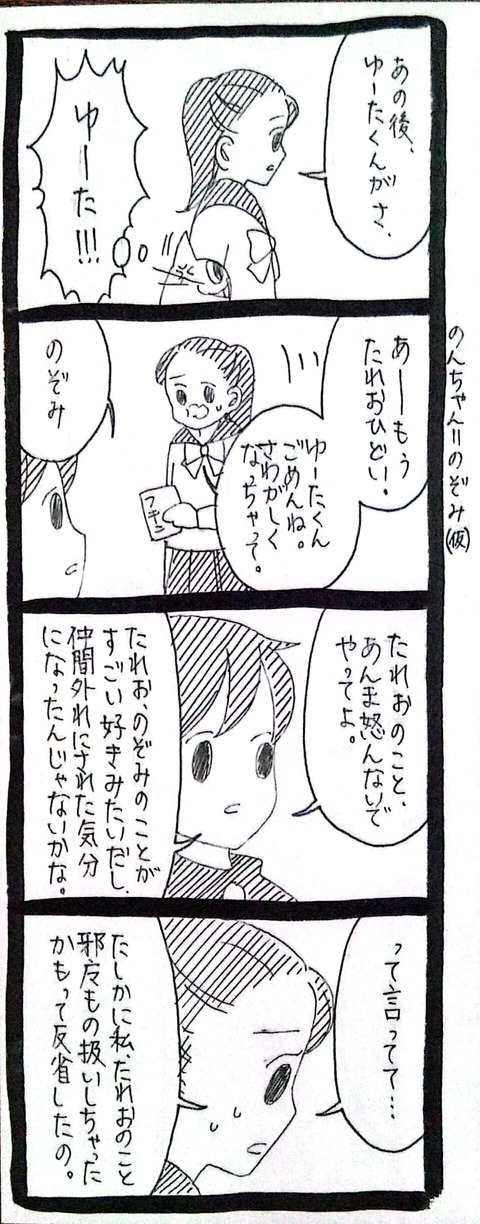 のんちゃん=のぞみ(仮)
あの後、
ゆーたくんがさ、
ゆーた!!!
あーもう
たれおひどい!
ゆーたくん
ごめんね。
さわがしく
なっちゃって。
のぞみ
たれおのこと、
あんま怒んないで
やってよ。
たれお、のぞみのことが
すごい好きみたいだし、
仲間外れにされた気分
になったんじゃないかな。
って言ってて…
たしかに私、たれおのこと
邪广もの扱いしちゃった
かもって反省したの。